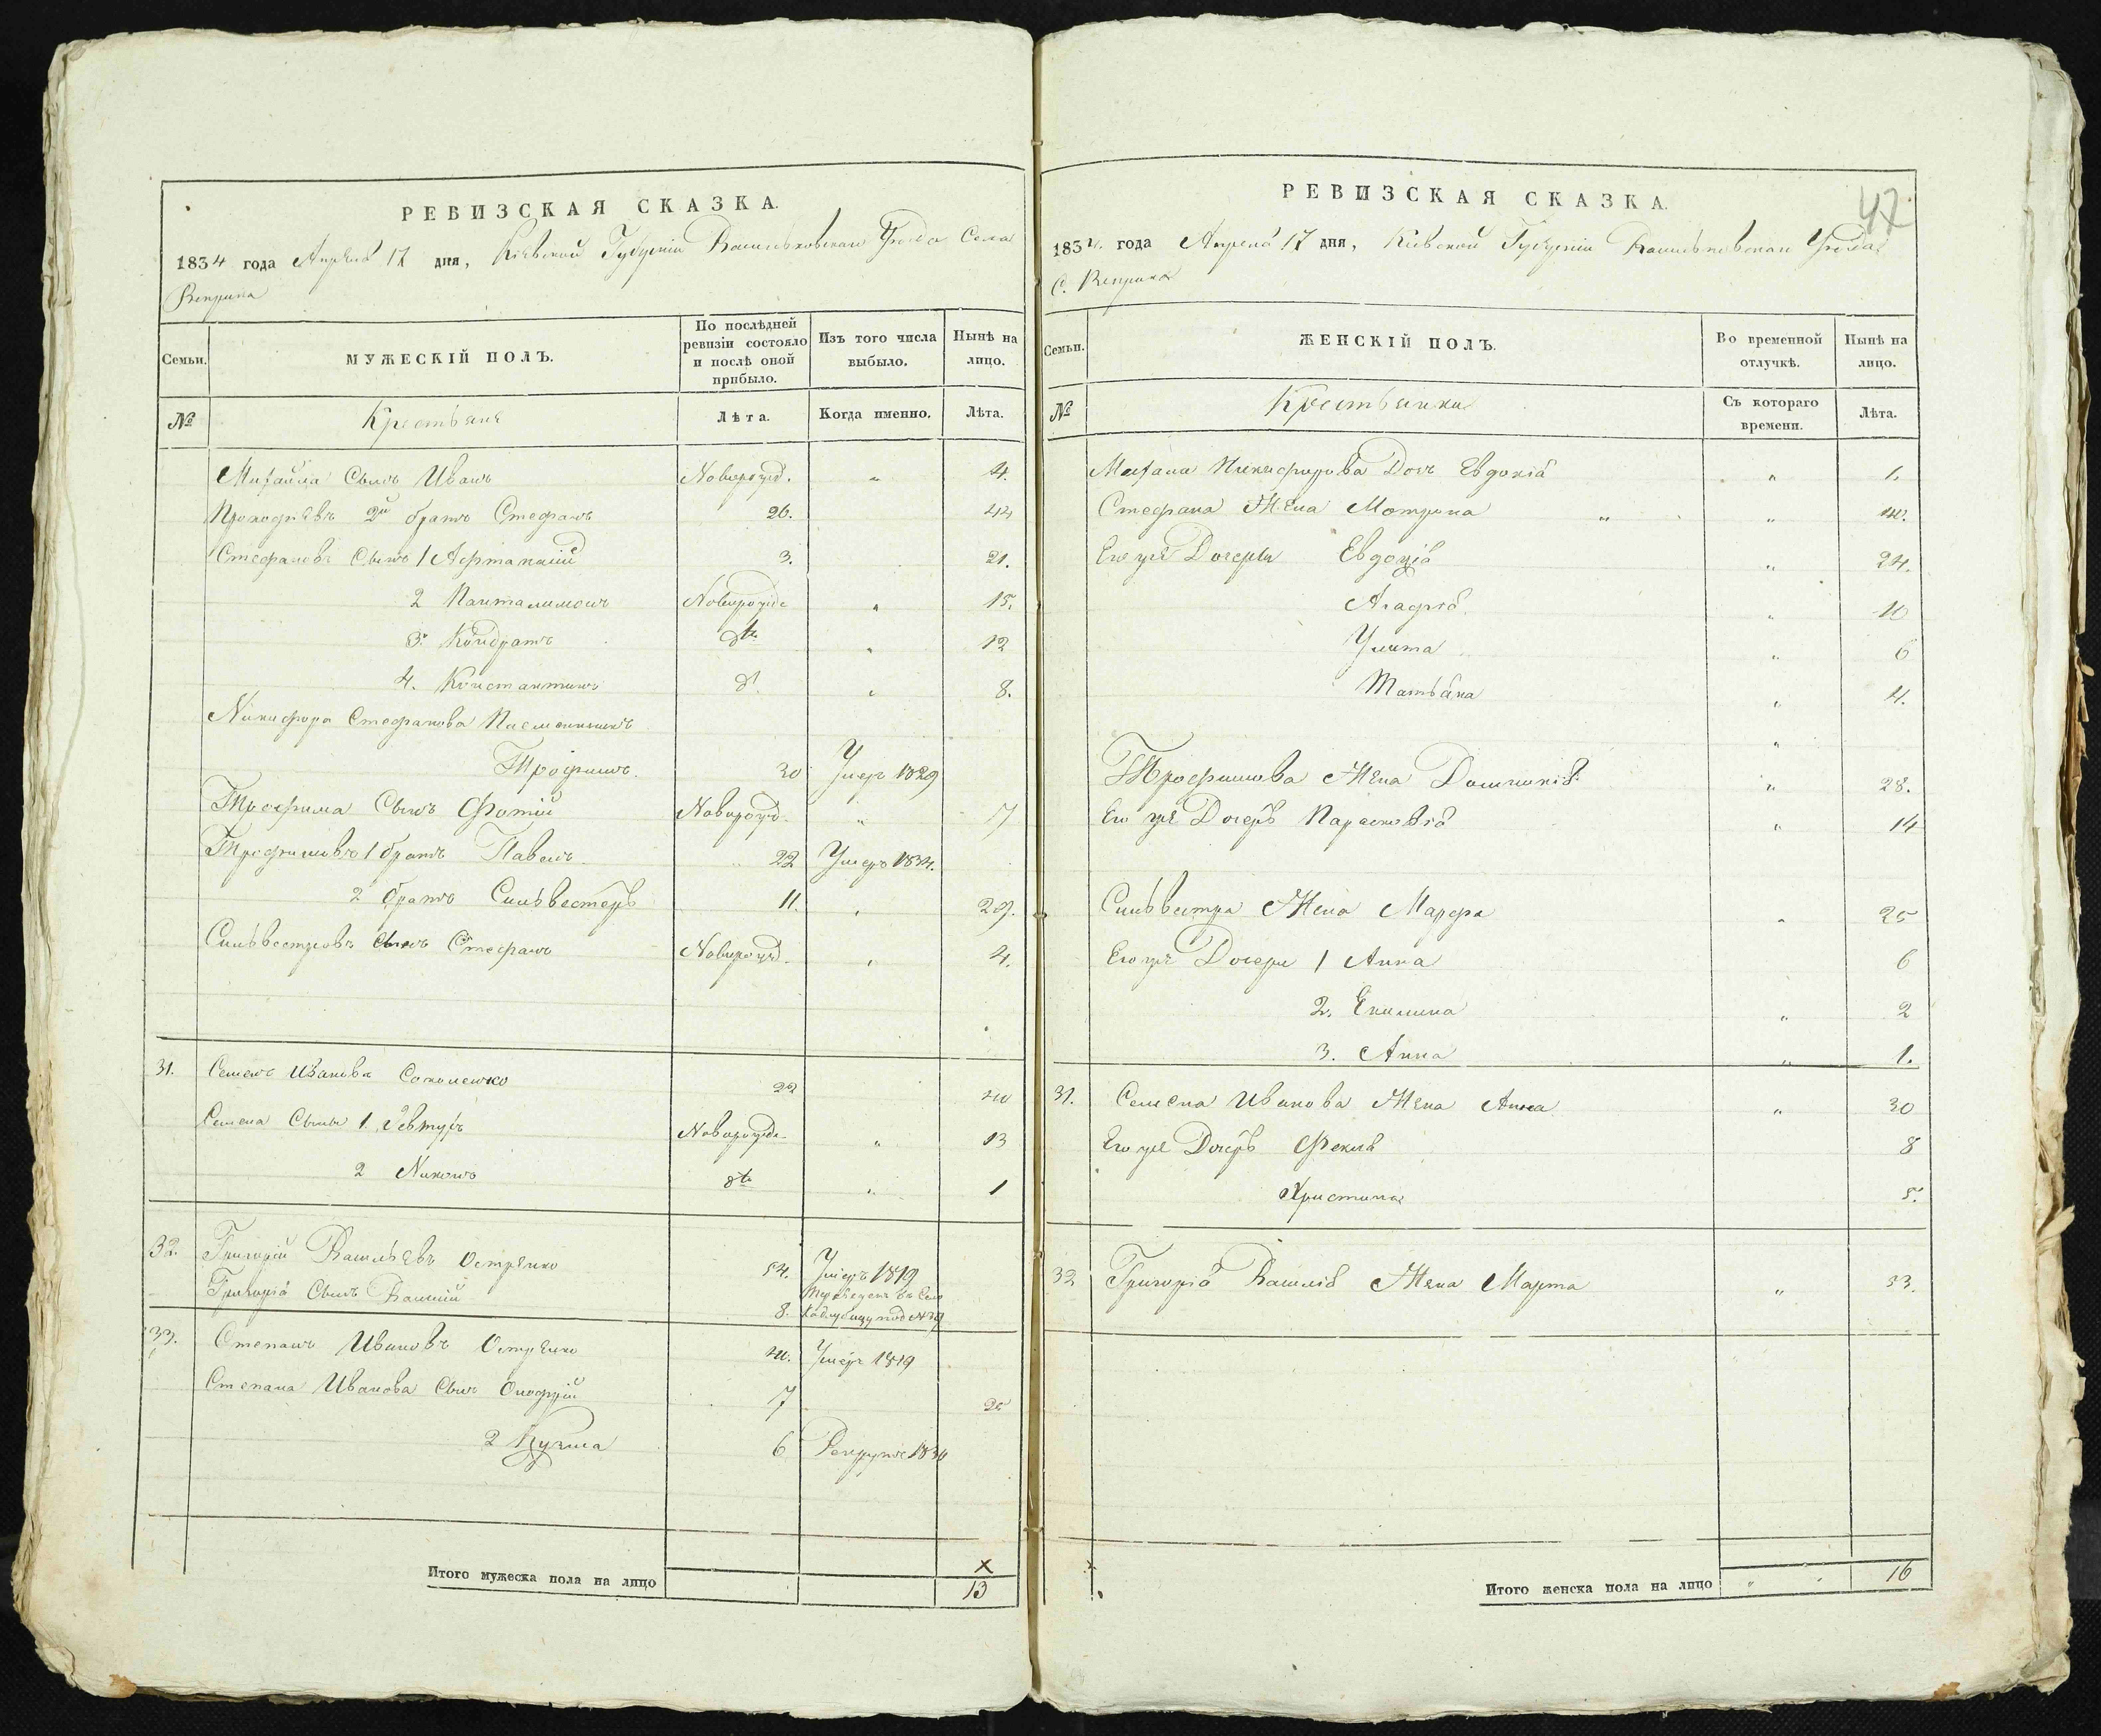 РЕВИЗСКАЯ СКАЗКА.
1834 года Апреля 17 дня, Кіевской Губерніи Васильковскаго Уезда Села
Веприка
Семьи.
МУЖЕСКІЙ ПОЛЪ.
По послѣдней ревизіи состояло и послѣ оной прибыло.
Изъ того числа выбыло.
Нынѣ на лицо.
№
Крестьяне
Лѣта.
Когда именно.
Лѣта.
Михайла Сынъ Иванъ Новорожд. " 4.
Прокофіевъ 2й братъ Стефанъ 26. 44
Стефановъ Сынъ 1 3. 21.
2 Панталимонъ Новорожд. " 15.
3. Кондратъ dto " 12
4. Константинъ dt " 8.
Никифора Стефанова Племянникъ
Трофимъ. 30 Умеръ 1829
Трофима Сынъ Фотій Новорожд. " 7
Трофимовъ 1 братъ Павелъ 22 Умеръ 1834.
2 братъ Сильвестеръ 11. " 29.
Сильвестровъ Сынъ Стефанъ Новорожд. " 4.
31. Семенъ Ивановъ 22 40
Семена Сыны 1. Новорожд. " 13
2 Никонъ dto " 1
32. Григорій Васильевъ Остренко 54. Умеръ 1819
Григорія Сынъ Василій 8. Переведенъ въ Село
под № 39
33. Степанъ Ивановъ Остренко 40. Умеръ 1819
Степана Иванова Сынъ Онофрій 7 25
2 Кузьма 6 Рекрутъ 1834
Итого мужеска пола на лицо
х
13
47
РЕВИЗСКАЯ СКАЗКА.
1834 года Апреля 17 дня, Кіевской Губерніи Васильковскаго Уезда
С. Веприка
Семьи.
ЖЕНСКІЙ ПОЛЪ.
Во временной отлучкѣ.
Нынѣ на лицо.
№
Крестьянки
Съ котораго времени.
Лѣта.
Никифорова Дочь Евдокія " 1.
Стефана Жена Мотрона " " 40.
Его же Дочери Евдокія " 24.
Агафія " 10
Улита " 6
Татьяна " 4.
"
Трофимова Жена Домникія " 28.
Его же Дочерь Парасковія " 14
Сильвестра Жена Марфа " 25
Его же Дочери 1 Анна 6
2. Екилина " 2
3. Анна " 1.
31. Семена Иванова Жена Анна " 30
Его же Дочерь Фекла 8
Христина 5.
32 Григорія Василія Жена Марта " 53.
Итого женска пола на лицо " 16